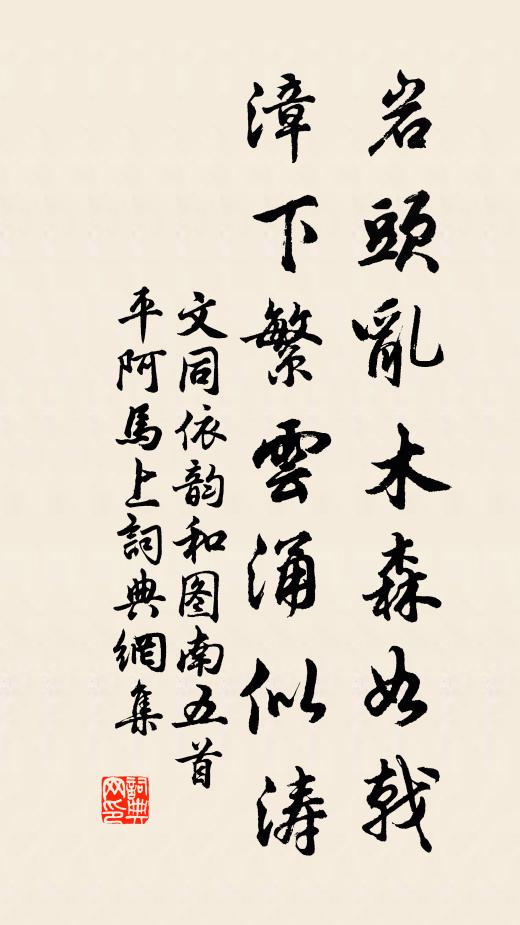 岩頭亂木森如戟
漳下繁雲涌似濤
文同依韵和图南五首
平阿馬上詞典網集
詞典网印